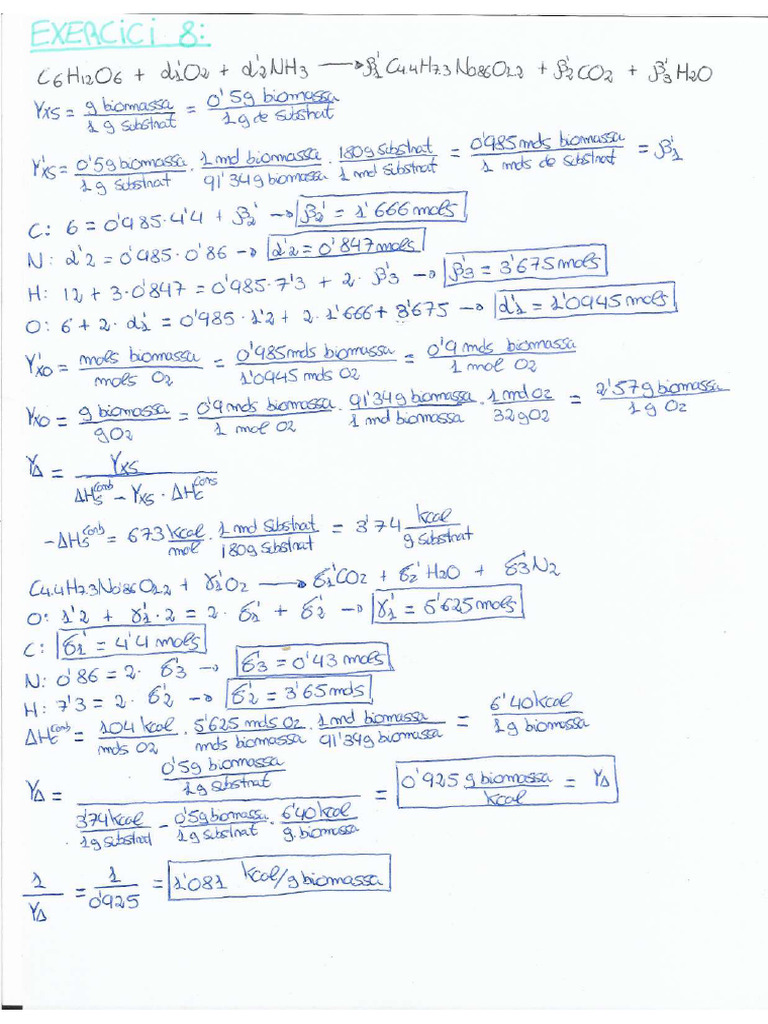 EXERCICI 8:
C6H12O6 + α'1O2 + α'2NH3 → β'1 C4.4H7.3N0'86O1.2 + β'2CO2 + β'3H2O
Yxs = g biomassa / 1 g substrat = 0'5g biomassa / 1 g de substrat
Y'xs = 0'5g biomassa / 1 g substrat · 1 mol biomassa / 91'34g biomassa · 180g substrat / 1 mol substrat = 0'985 mols biomassa / 1 mols de substrat = β'1
C: 6 = 0'985·4'4 + β'2 → β'2 = 1'666 mols
N: α'2 = 0'985·0'86 → α'2 = 0'847 mols
H: 12 + 3·0'847 = 0'985·7'3 + 2·β'3 → β'3 = 3'675 mols
O: 6 + 2·α'1 = 0'985·1'2 + 2·1'666 + 3'675 → α'1 = 1'0945 mols
Y'xo = mols biomassa / mols O2 = 0'985 mols biomassa / 1'0945 mols O2 = 0'9 mols biomassa / 1 mol O2
Yxo = g biomassa / gO2 = 0'9 mols biomassa / 1 mol O2 · 91'34g biomassa / 1 mol biomassa · 1 mol O2 / 32gO2 = 2'57g biomassa / 1 g O2
YΔ = Yxs / ΔHs^comb - Yxs · ΔHc^cons
-ΔHs^comb = 673 kcal / mol · 1 mol substrat / 180g substrat = 3'74 kcal / g substrat
C4.4H7.3N0'86O1.2 + γ'1O2 → δ'1CO2 + δ'2H2O + δ'3N2
O: 1'2 + γ'1·2 = 2·δ'1 + δ'2 → γ'1 = 5'625 mols
C: δ'1 = 4'4 mols
N: 0'86 = 2·δ'3 → δ'3 = 0'43 mols
H: 7'3 = 2·δ'2 → δ'2 = 3'65 mols
ΔHc^comb = 104 kcal / mols O2 · 5'625 mols O2 / mols biomassa · 1 mol biomassa / 91'34g biomassa = 6'40 kcal / 1g biomassa
YΔ = 0'5g biomassa / 1g substrat / 3'74 kcal / 1g substrat - 0'5g biomassa / 1g substrat · 6'40 kcal / g. biomassa = 0'925 g biomassa / kcal = YΔ
1 / YΔ = 1 / 0'925 = 1'081 kcal/g biomassa